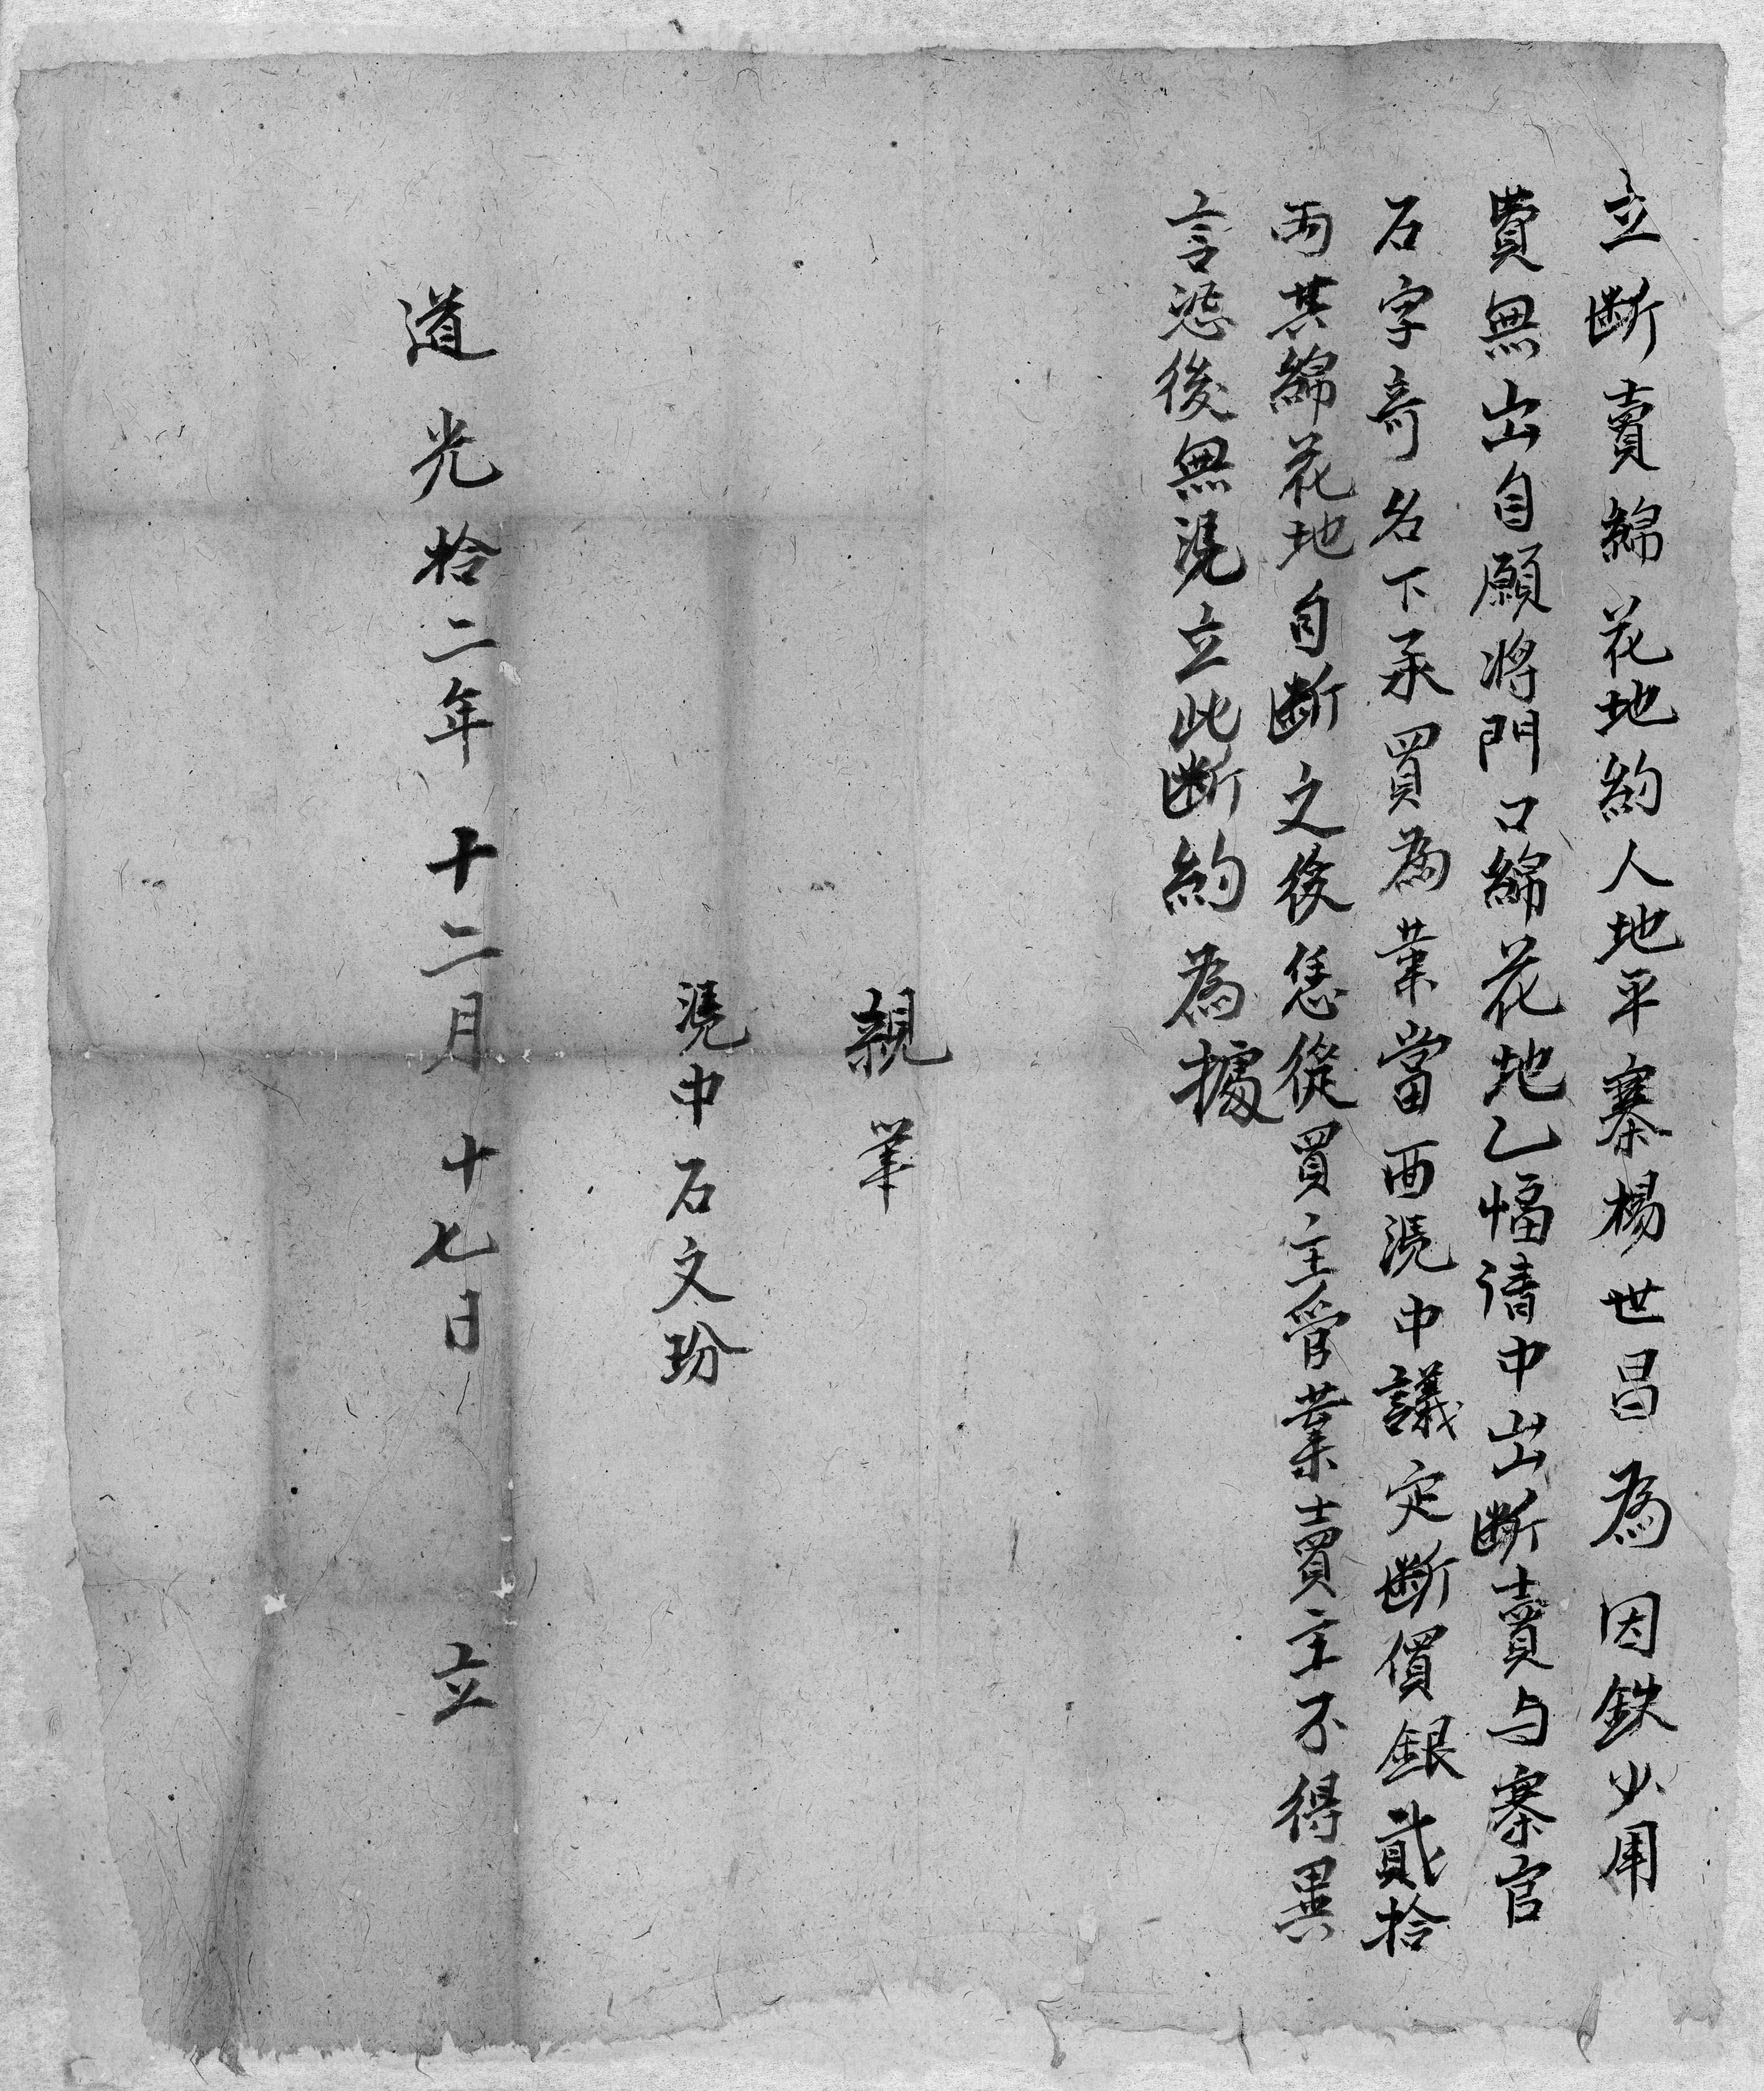 立断賣綿花地約人地平寨楊世昌為因鉄少用
費無出自願將門口綿花地乙幅请中出断賣与寨官
石字奇名下承買為業當面凴中議定断價銀貳拾
両其綿花地自断之後恁從買主管業賣主不得異
言恐後無凴立此断約為據
親筆
凴中石文玢
道光拾二年十二月十七日立